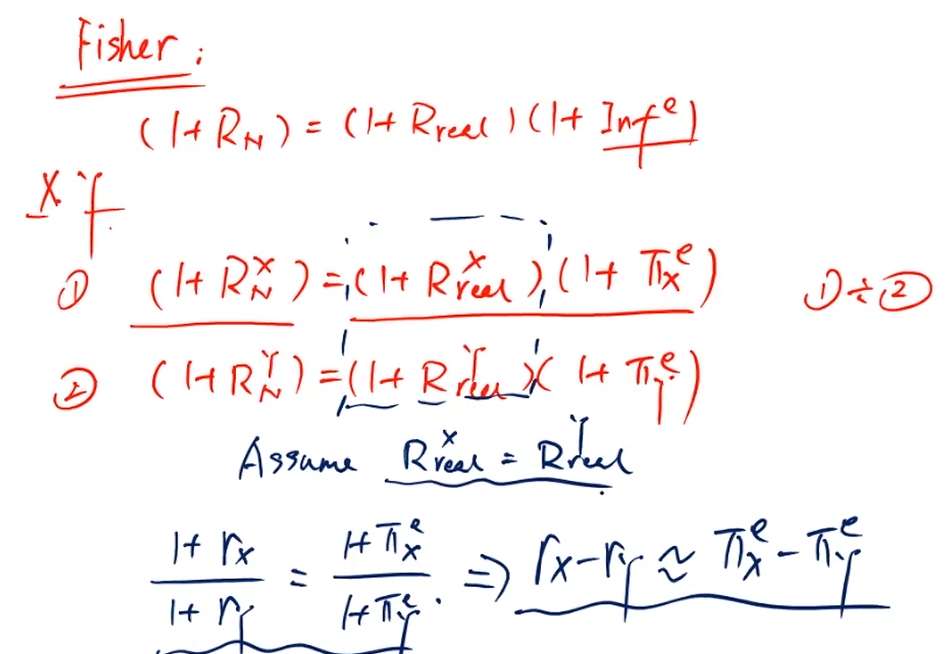 Fisher:
(1+R_N) = (1+R_real)(1+Inf^e)
X Y
① (1+R_N^X) = (1+R_real^X)(1+π_x^e) ①÷②
② (1+R_N^Y) = (1+R_real^Y)(1+π_y^e)
Assume R_real^X = R_real^Y
(1+r_x)/(1+r_y) = (1+π_x^e)/(1+π_y^e) ⇒ r_x-r_y ≈ π_x^e-π_y^e